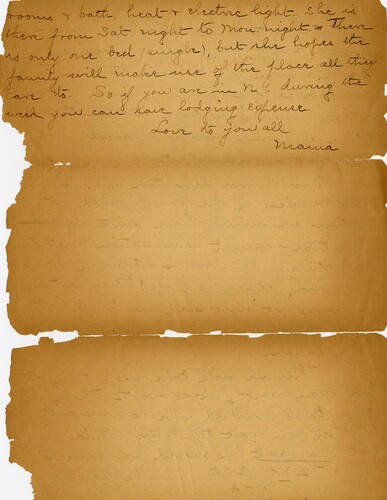 rooms & bath, heat & electric light. She is
there from Sat. night to Mon. night. There
is only one bed (single), but she hopes the
family will make use of the place all they
care to. So if you are in N.Y. during the
week you can save lodging expense
Love to you all
Mama